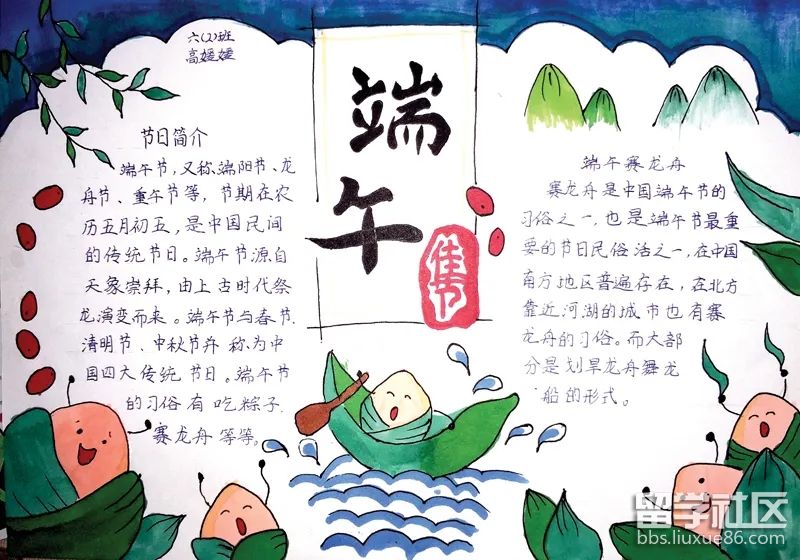 六(2)班
高媛媛
端午
佳节
节日简介
端午节,又称端阳节、龙
舟节、重午节等,节期在农
历五月初五,是中国民间
的传统节日。端午节源自
天象崇拜,由上古时代祭
龙演变而来。端午节与春节
清明节、中秋节并称为中
国四大传统节日。端午节
的习俗有吃粽子.
赛龙舟等等。
端午赛龙舟
赛龙舟是中国端午节的
习俗之一,也是端午节最重
要的节日民俗活之一,在中国
南方地区普遍存在,在北方
靠近河湖的城市也有赛
龙舟的习俗。而大部
分是划旱龙舟舞龙
船的形式。
留学社区
bbs.liuxue86.com